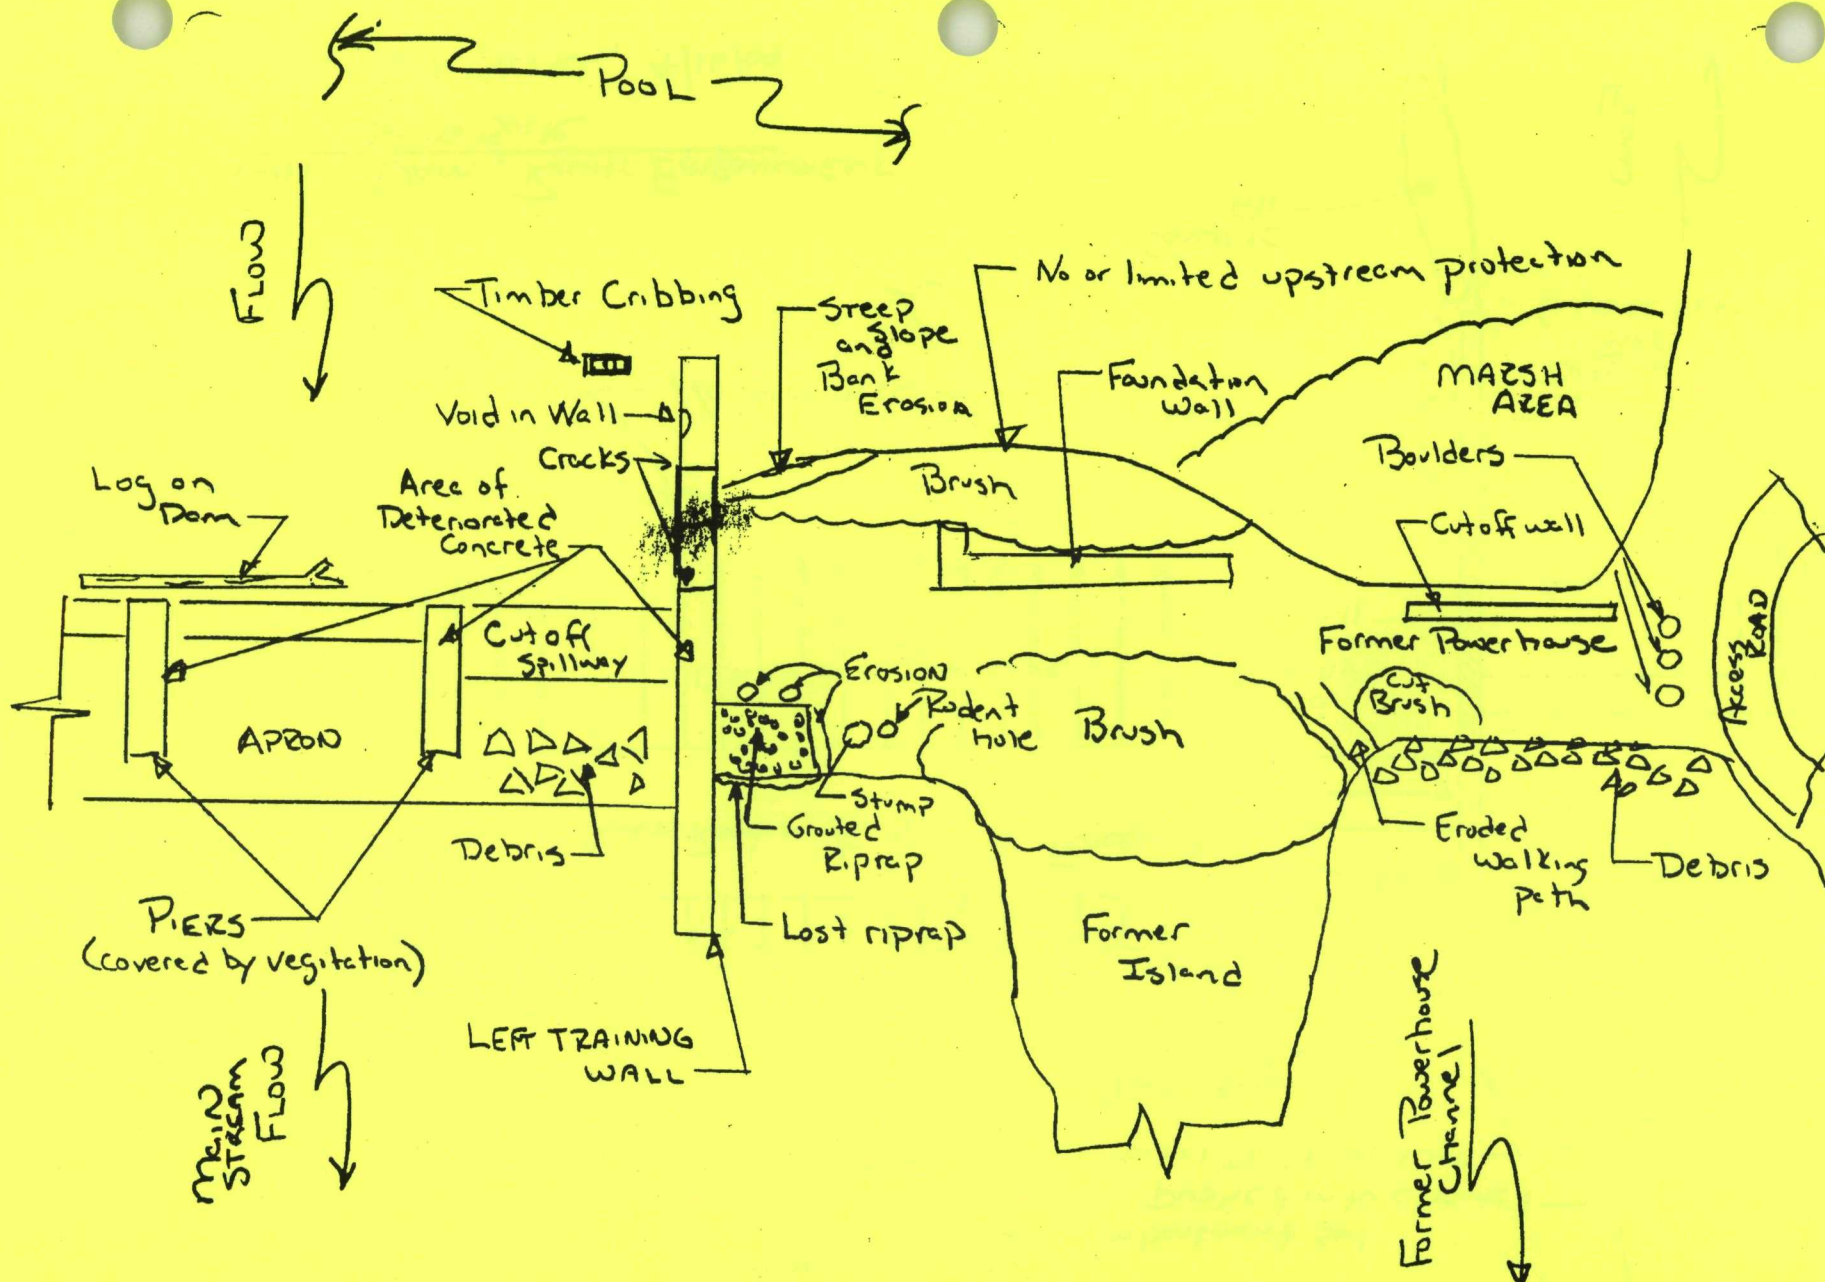 POOL
FLOW
Timber Cribbing
Steep
Slope
and
Bank
Erosion
No or limited upstream protection
Foundation
Wall
MARSH
AREA
Void in Wall
Cracks
Boulders
Log on
Dam
Area of
Deteriorated
Concrete
Brush
Cutoff wall
Cutoff
Spillway
Former Powerhouse
Access
ROAD
Erosion
Rodent
hole
Cut
Brush
APRON
Brush
Stump
Grouted
Riprap
Debris
Eroded
Walking
path
Debris
PIERS
(covered by vegitation)
Lost riprap
Former
Island
LEFT TRAINING
WALL
MAIN
STREAM
FLOW
Former Powerhouse
Channel